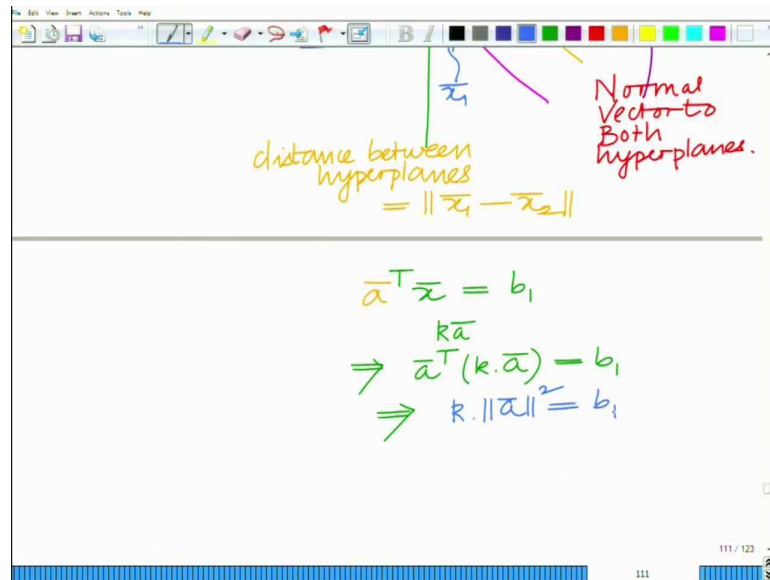 File Edit View Insert Actions Tools Help
B I
x̄₁
Normal
Vector to
Both
hyperplanes.
distance between
hyperplanes
= ||x̄₁ − x̄₂||
ā^T x̄ = b₁
kā
⇒ ā^T (k.ā) = b₁
⇒ k.||ā||² = b₁
111 / 123
111